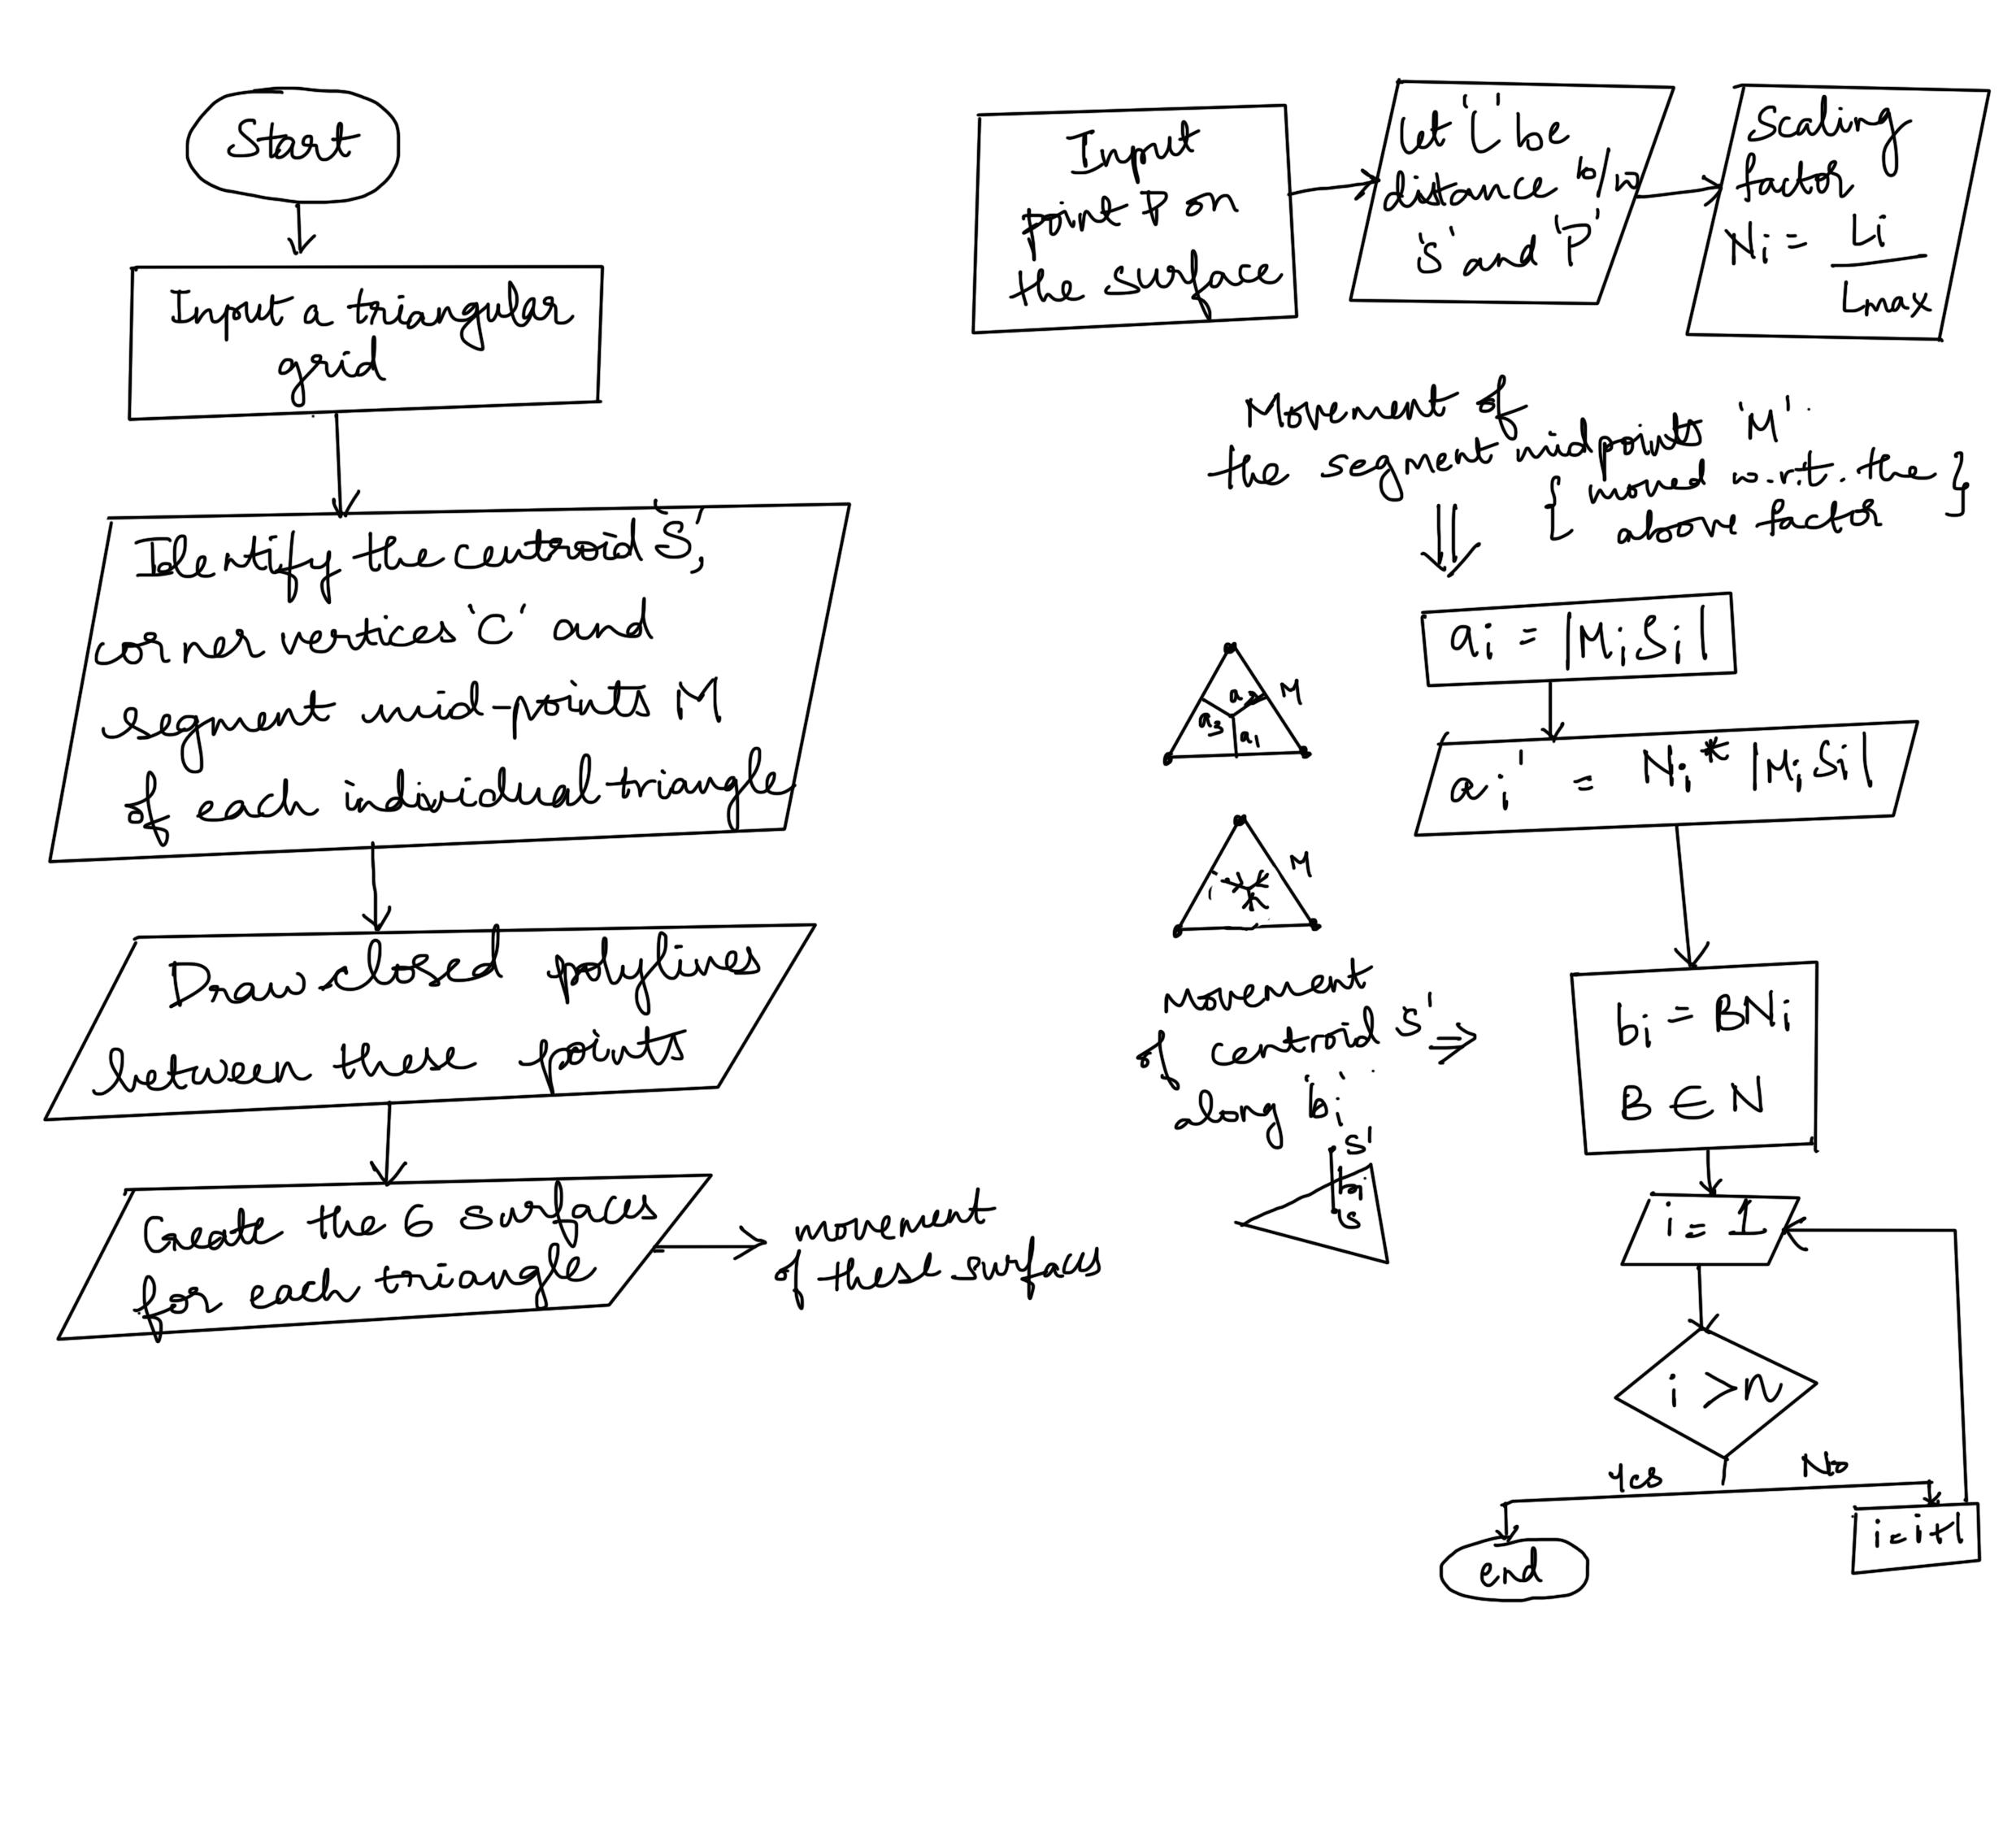 Start
Input a triangular
grid
Identify the centroid 'S',
corner vertices 'C' and
segment mid-points M
of each individual triangle
Draw closed polylines
between these points
Create the 6 surfaces
for each triangle
movement
of these surfaces
Input
point P on
the surface
Let 'L' be
distance b/w
'S' and 'P'
Scaling
factor
Ni = Li
Lmax
Movement of
the segment midpoints 'M'.
{ moved w.r.t. the }
above factor
ai = |MiSi|
a2 M
a3 a1
ai' = Ni * |MiSi|
M
movement
of centroid S' ⇒
along 'bi'
S'
bi
S
bi = BNi
B ∈ N
i = 1
i > n
Yes
No
i = i+1
end